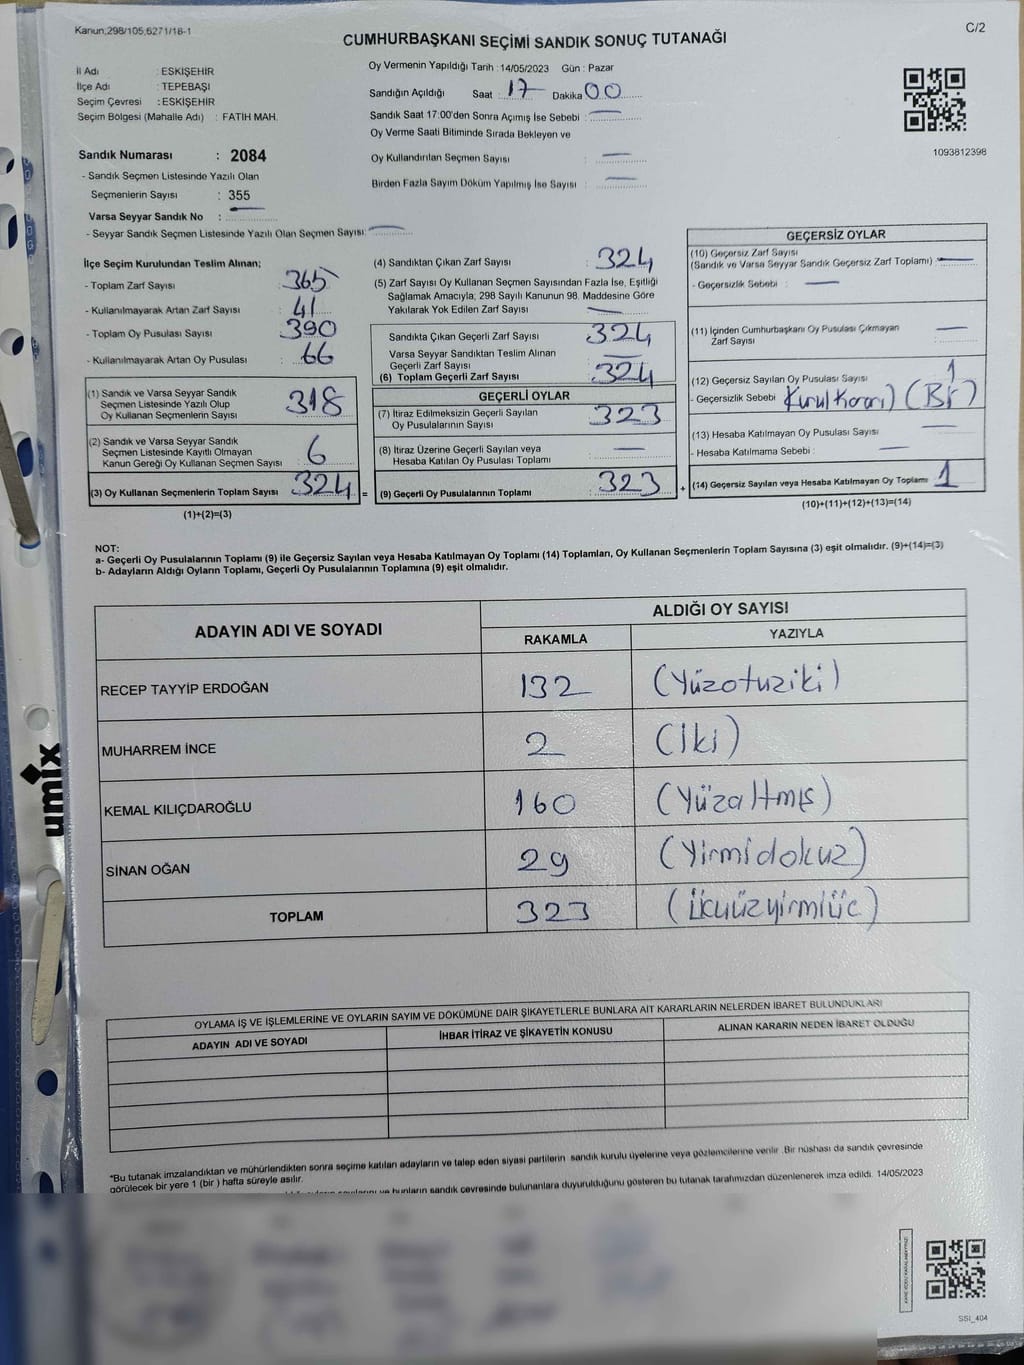 Kanun,298/105,5271/18-1
C/2
CUMHURBAŞKANI SEÇİMİ SANDIK SONUÇ TUTANAĞI
İl Adı : ESKİŞEHİR
İlçe Adı : TEPEBAŞI
Seçim Çevresi : ESKİŞEHİR
Seçim Bölgesi (Mahalle Adı) : FATİH MAH.
Oy Vermenin Yapıldığı Tarih : 14/05/2023 Gün : Pazar
Sandığın Açıldığı Saat : 17 Dakika 00
Sandık Saat 17:00'den Sonra Açımış İse Sebebi : —
Oy Verme Saati Bitiminde Sırada Bekleyen ve
Oy Kullandırılan Seçmen Sayısı : —
Birden Fazla Sayım Döküm Yapılmış İse Sayısı : —
1093812398
Sandık Numarası : 2084
- Sandık Seçmen Listesinde Yazılı Olan
Seçmenlerin Sayısı : 355
Varsa Seyyar Sandık No : —
- Seyyar Sandık Seçmen Listesinde Yazılı Olan Seçmen Sayısı: —
İlçe Seçim Kurulundan Teslim Alınan;
- Toplam Zarf Sayısı : 365
- Kullanılmayarak Artan Zarf Sayısı : 41
- Toplam Oy Pusulası Sayısı : 390
- Kullanılmayarak Artan Oy Pusulası : 66
(1) Sandık ve Varsa Seyyar Sandık
Seçmen Listesinde Yazılı Olup
Oy Kullanan Seçmenlerin Sayısı : 318
(2) Sandık ve Varsa Seyyar Sandık
Seçmen Listesinde Kayıtlı Olmayan
Kanun Gereği Oy Kullanan Seçmen Sayısı : 6
(3) Oy Kullanan Seçmenlerin Toplam Sayısı : 324 =
(1)+(2)=(3)
(4) Sandıktan Çıkan Zarf Sayısı : 324
(5) Zarf Sayısı Oy Kullanan Seçmen Sayısından Fazla İse, Eşitliği
Sağlamak Amacıyla; 298 Sayılı Kanunun 98. Maddesine Göre
Yakılarak Yok Edilen Zarf Sayısı : —
Sandıkta Çıkan Geçerli Zarf Sayısı : 324
Varsa Seyyar Sandıktan Teslim Alınan
Geçerli Zarf Sayısı : —
(6) Toplam Geçerli Zarf Sayısı : 324
GEÇERLİ OYLAR
(7) İtiraz Edilmeksizin Geçerli Sayılan
Oy Pusulalarının Sayısı : 323
(8) İtiraz Üzerine Geçerli Sayılan veya
Hesaba Katılan Oy Pusulası Toplamı : —
(9) Geçerli Oy Pusulalarının Toplamı : 323 +
GEÇERSİZ OYLAR
(10) Geçersiz Zarf Sayısı
(Sandık ve Varsa Seyyar Sandık Geçersiz Zarf Toplamı) : —
- Geçersizlik Sebebi : —
(11) İçinden Cumhurbaşkanı Oy Pusulası Çıkmayan
Zarf Sayısı : —
(12) Geçersiz Sayılan Oy Pusulası Sayısı : 1
- Geçersizlik Sebebi : Kurul Kararı) (Bir)
(13) Hesaba Katılmayan Oy Pusulası Sayısı : —
- Hesaba Katılmama Sebebi : —
(14) Geçersiz Sayılan veya Hesaba Katılmayan Oy Toplamı : 1
(10)+(11)+(12)+(13)=(14)
NOT:
a- Geçerli Oy Pusulalarının Toplamı (9) ile Geçersiz Sayılan veya Hesaba Katılmayan Oy Toplamı (14) Toplamları, Oy Kullanan Seçmenlerin Toplam Sayısına (3) eşit olmalıdır. (9)+(14)=(3)
b- Adayların Aldığı Oyların Toplamı, Geçerli Oy Pusulalarının Toplamına (9) eşit olmalıdır.
ADAYIN ADI VE SOYADI
ALDIĞI OY SAYISI
RAKAMLA YAZIYLA
RECEP TAYYİP ERDOĞAN 132 (Yüzotuziki)
MUHARREM İNCE 2 (İki)
KEMAL KILIÇDAROĞLU 160 (Yüzaltmış)
SİNAN OĞAN 29 (Yirmidokuz)
TOPLAM 323 (Üçyüzyirmiüç)
OYLAMA İŞ VE İŞLEMLERİNE VE OYLARIN SAYIM VE DÖKÜMÜNE DAİR ŞİKAYETLERLE BUNLARA AİT KARARLARIN NELERDEN İBARET BULUNDUKLARI
ADAYIN ADI VE SOYADI
İHBAR İTİRAZ VE ŞİKAYETİN KONUSU
ALINAN KARARIN NEDEN İBARET OLDUĞU
*Bu tutanak imzalandıktan ve mühürlendikten sonra seçime katılan adayların ve talep eden siyasi partilerin sandık kurulu üyelerine veya gözlemcilerine verilir .Bir nüshası da sandık çevresinde
görülecek bir yere 1 (bir ) hafta süreyle asılır.
bunların sandık çevresinde bulunanlara duyurulduğunu gösteren bu tutanak tarafımızdan düzenlenerek imza edildi. 14/05/2023
SSİ_404
umix